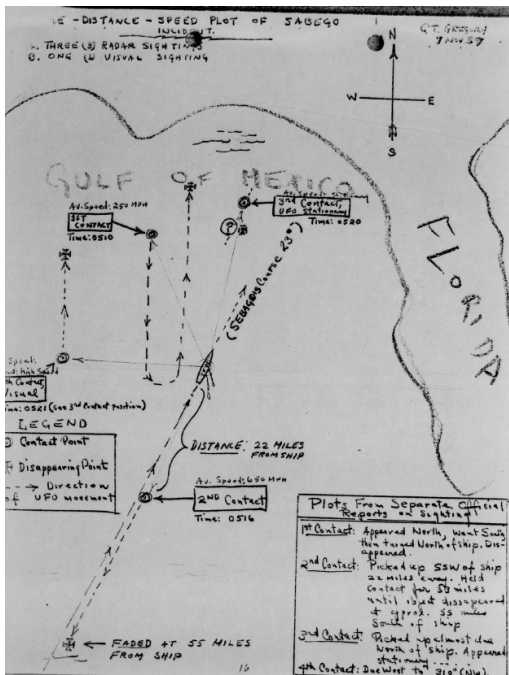 -DISTANCE-SPEED PLOT OF SABEGO
INCIDENT.
A. THREE (3) RADAR SIGHTINGS
B. ONE (1) VISUAL SIGHTING
G.T. GREGORY
7 NOV 57
N
W
E
S
GULF OF MEXICO
FLORIDA
Av. Speed: 250 MPH
1ST
CONTACT
Time: 0510
Av. Speed:
3rd Contact,
UFO stationary
Time: 0520
?
(SEBAGO'S Course 23°)
Speed:
high Speed
Contact
Visual
: 0521 (see 3rd Contact position)
LEGEND
Contact Point
Disappearing Point
Direction
of UFO movement
DISTANCE: 22 MILES
FROM SHIP
Av. Speed: 650 MPH
2ND Contact
Time: 0516
FADED AT 55 MILES
FROM SHIP
16
Plots From Separate Official
Reports on Sighting
1st Contact: Appeared North, went South,
then turned North of ship. Dis-
appeared.
2nd Contact: Picked up SSW of ship
22 miles away. Held
contact for 55 miles
until disappeared
55 miles
South of ship
3rd Contact: Picked up almost due
North of ship. Appeared
stationary
4th Contact: Due West to 310° (NW).